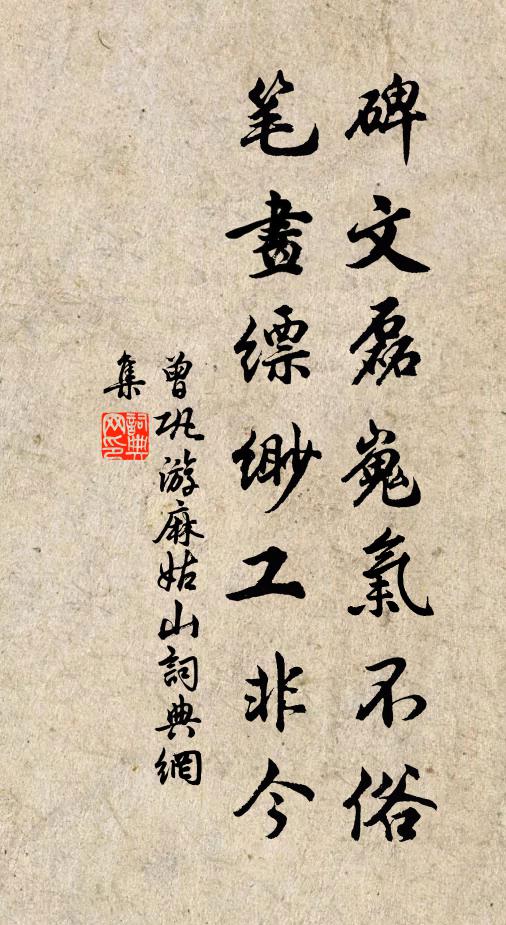 碑文磊嵬氣不俗
笔畫縹緲工非今
曾巩游麻姑山詞典網
集
詞典
网印